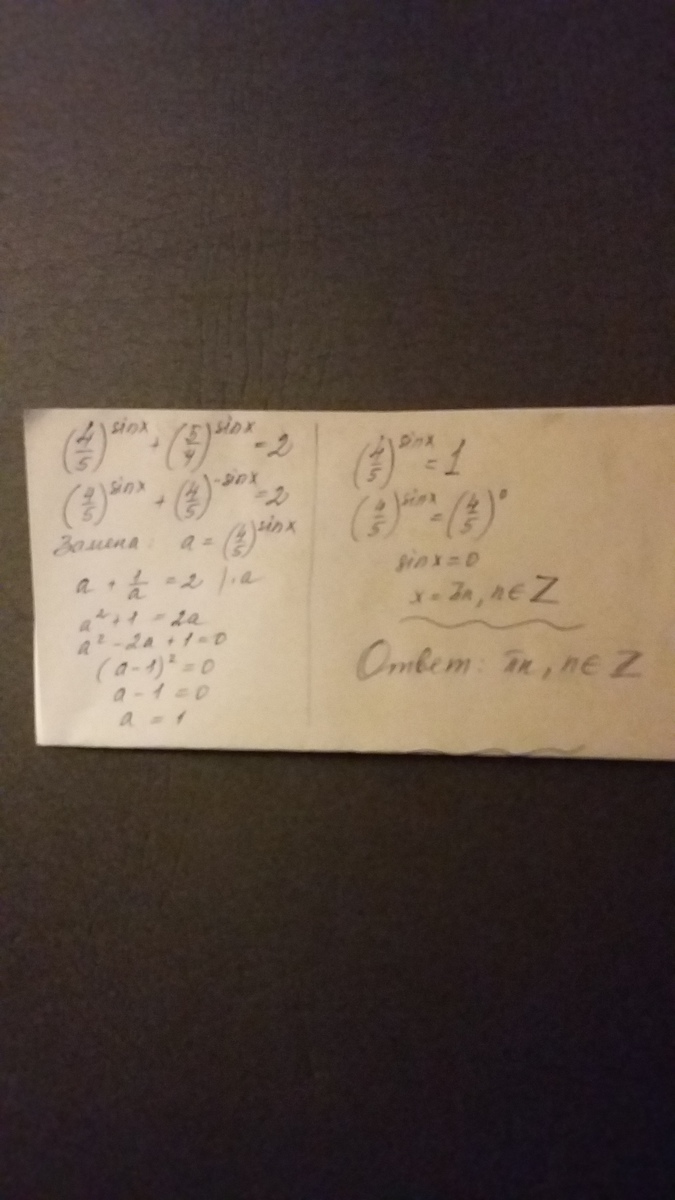 (4/5)^sinx + (5/4)^sinx = 2
(4/5)^sinx + (4/5)^-sinx = 2
Замена: a = (4/5)^sinx
a + 1/a = 2 | · a
a² + 1 = 2a
a² - 2a + 1 = 0
(a - 1)² = 0
a - 1 = 0
a = 1
(4/5)^sinx = 1
(4/5)^sinx = (4/5)^0
sinx = 0
x = πn, n ∈ Z
Ответ: πn, n ∈ Z